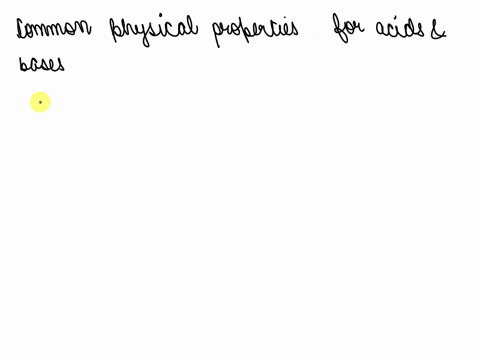 Common physical properties for acids &
bases